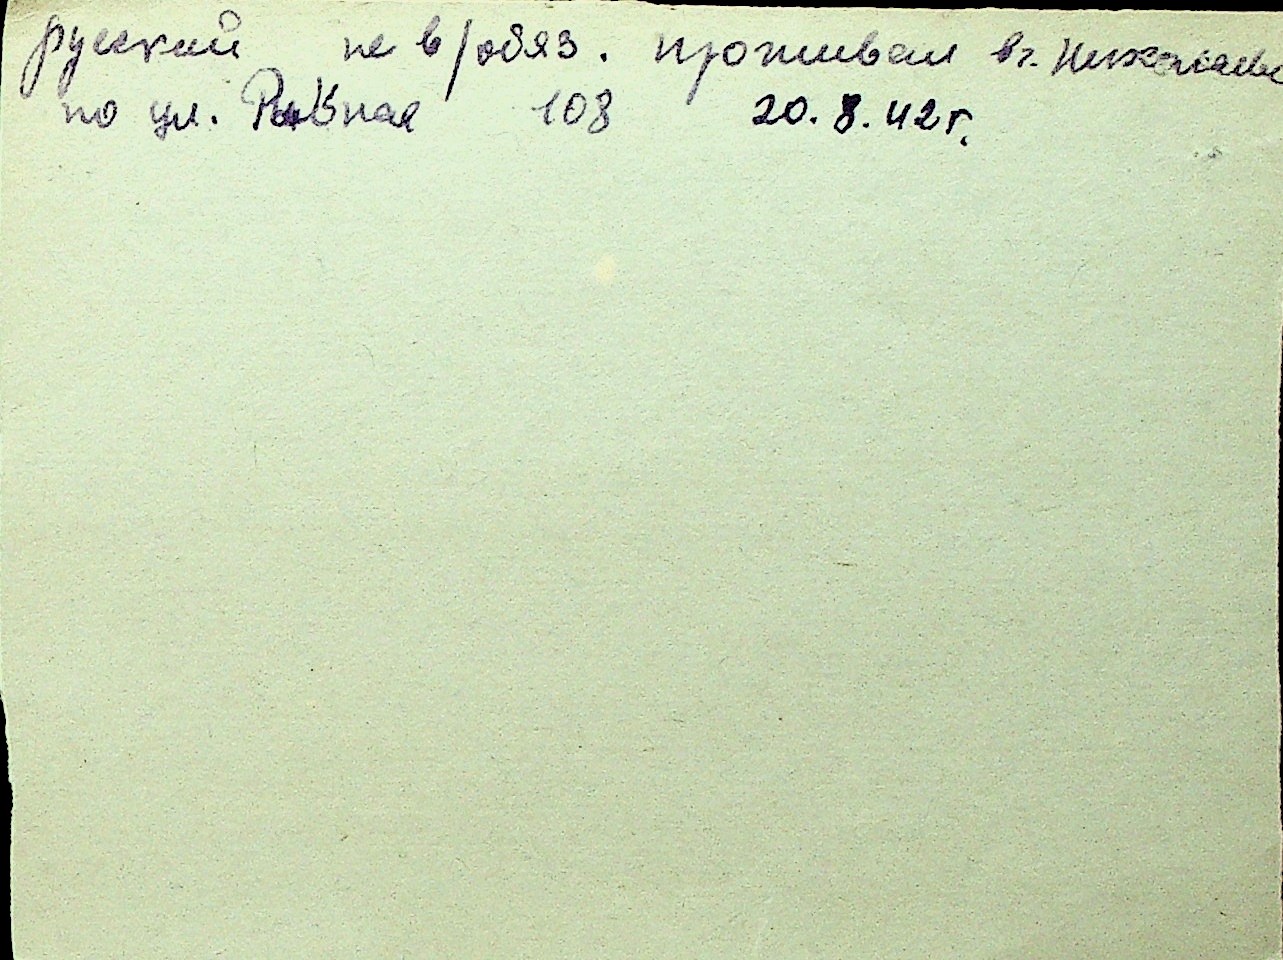 русский не в/обяз. проживал в г. Николаеве
по ул. Рабная 108 20.8.42г.